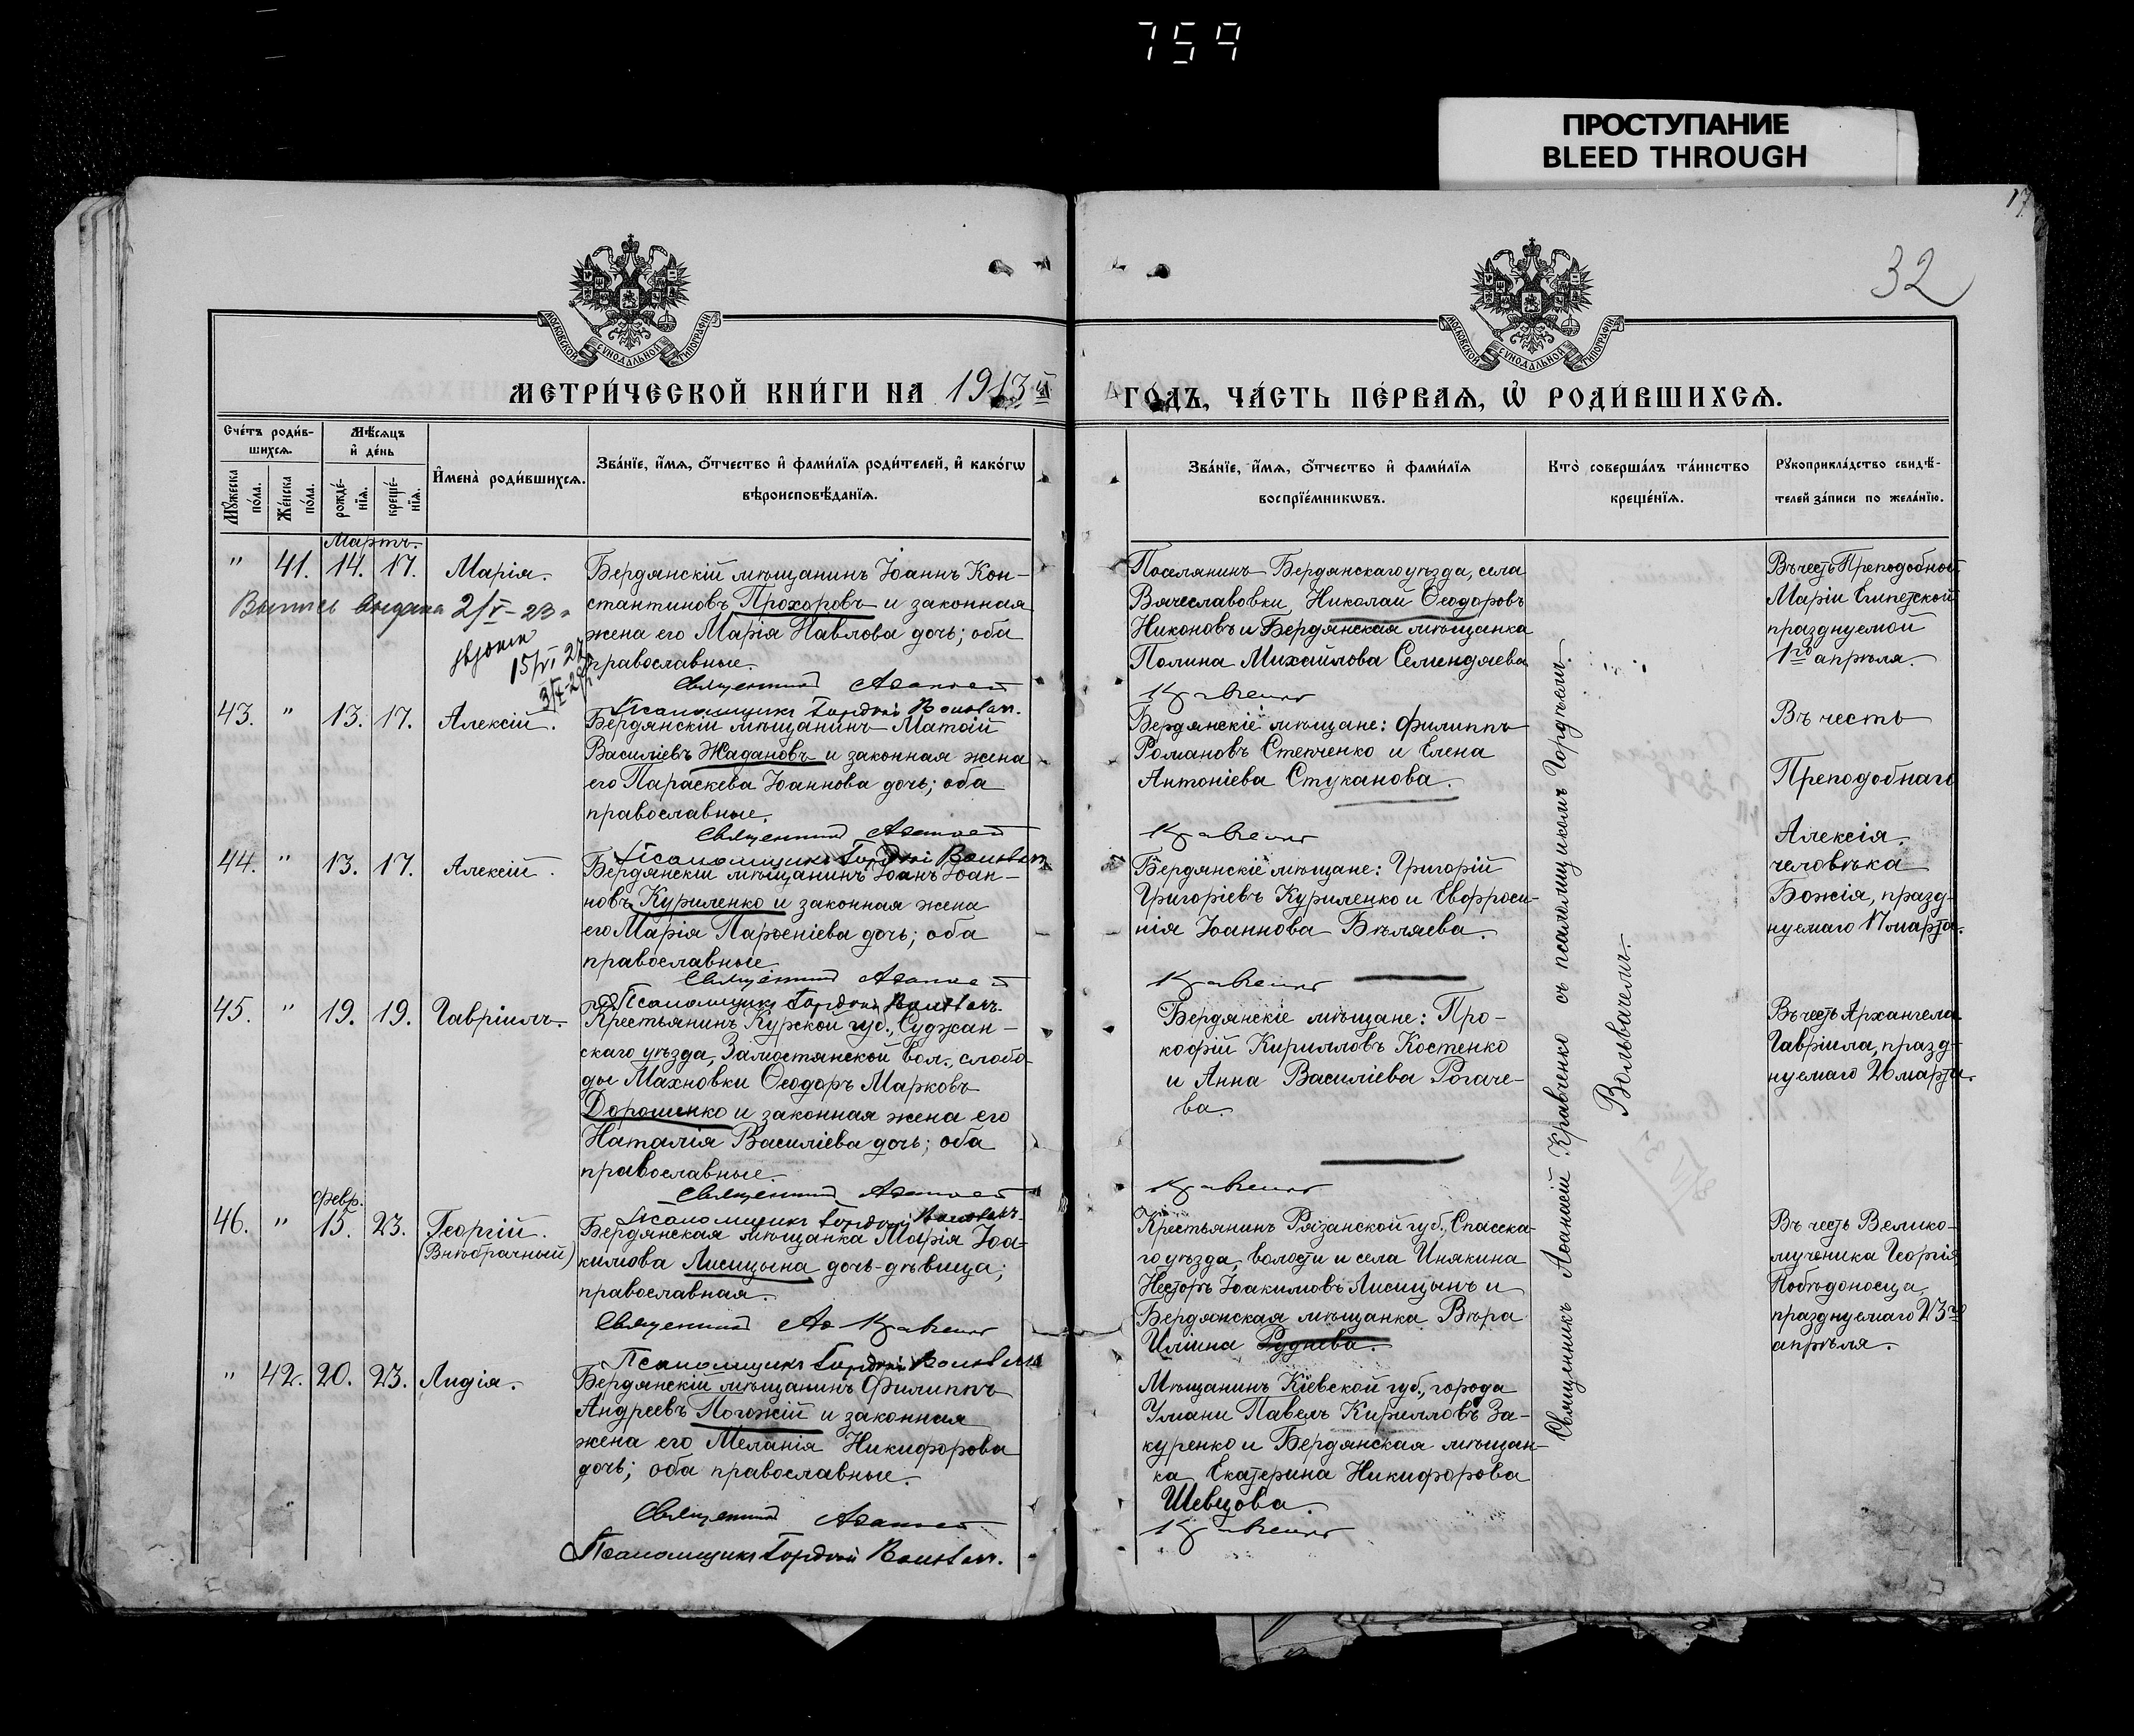 759
ПРОСТУПАНИЕ
BLEED THROUGH
17
32
МОСКОВСКОЙ СѴНОДАЛЬНОЙ ТИПОГРАФІИ
МОСКОВСКОЙ СѴНОДАЛЬНОЙ ТИПОГРАФІИ
МЕТРИ́ЧЕСКОЙ КНИ́ГИ НА 1913й
ГОДЪ, ЧА́СТЬ ПЕ́РВАѦ, Ѡ҆ РОДИ́ВШИХСѦ.
Сче́тъ роди́в-
шихсѧ.
Мꙋ́жеска по́ла.
Же́нска по́ла.
Мѣ́сяцъ
и҆ де́нь
рожде́-
нїѧ.
креще́-
нїѧ.
И҆мена̀ роди́вшихсѧ.
Зва́нїе, и҆́мѧ, ѻ҆́тчество и҆ фами́лїѧ роди́телей, и҆ како́гѡ
вѣроисповѣ́данїѧ.
Зва́нїе, и҆́мѧ, ѻ҆́тчество и҆ фами́лїѧ
воспрїе́мникѡвъ.
Кто̀ соверша́лъ та́инство
креще́нїѧ.
Рꙋкоприкла́дство свидѣ́-
телей за́писи по жела́нїю.
Мартъ.
" 41. 14. 17. Марія.
Выпись выдана 2/V-23
15/VI 27
Бердянскій мѣщанинъ Іоаннъ Кон-
стантиновъ Прохоровъ и законная
жена его Марія Павлова дочь; оба
православные.
Священникъ Аѳанасій
Псаломщикъ Гордѣй Вольвачъ.
Поселянинъ Бердянскаго уѣзда, села
Вячеславовки, Николай Ѳеодоровъ
Никоновъ и Бердянская мѣщанка
Полина Михайлова Семендяева
Кравченко
Въ честь Преподобной
Маріи Египетской
празднуемой
1го апрѣля.
43. " 13. 17. Алексій.
Бердянскій мѣщанинъ Матѳій
Василіевъ Жадановъ и законная жена
его Параскева Іоаннова дочь; оба
православные.
Священникъ Аѳанасій
Псаломщикъ Гордѣй Вольвачъ
Бердянскіе мѣщане: Филиппъ
Романовъ Степченко и Елена
Антоніева Стуканова.
Кравченко
Въ честь
Преподобнаго
Алексія,
человѣка
Божія, празд-
нуемаго 17 марта.
44. " 13. 17. Алексій.
Бердянскій мѣщанинъ Іоаннъ Іоан-
новъ Куриленко и законная жена
его Марія Парѳеніева дочь; оба
православные
Священникъ Аѳанасій
Псаломщикъ Гордѣй Вольвачъ.
Бердянскіе мѣщане: Григорій
Григоріевъ Куриленко и Евфроси-
нія Іоаннова Бѣляева.
Кравченко
45. " 19. 19. Гавріилъ.
Крестьянинъ Курской губ., Суджан-
скаго уѣзда, Замостянской вол., слобо-
ды Махновки Ѳеодоръ Марковъ
Дорошенко и законная жена его
Наталія Василіева дочь; оба
православные.
Священникъ Аѳанасій
Псаломщикъ Гордѣй Вольвачъ.
Бердянскіе мѣщане: Про-
кофій Кирилловъ Костенко
и Анна Василіева Рогаче-
ва.
Кравченко
Въ честь Архангела
Гавріила, празд-
нуемаго 26 марта.
Февр.
46. " 15. 23. Георгій.
(Внѣбрачный)
Бердянская мѣщанка Марія Іоа-
кимова Лисицына дочь-дѣвица;
православная.
Священникъ Аѳ Кравченко
Псаломщикъ Гордѣй Вольвачъ
Крестьянинъ Рязанской губ., Спасска-
го уѣзда, волости и села Инякина
Несторъ Іоакимовъ Лисицынъ и
Бердянская мѣщанка Вѣра
Иліина Руднева.
Въ честь Велико-
мученика Георгія
Побѣдоносца,
празднуемаго 23го
апрѣля.
" 42. 20. 23. Лидія.
Бердянскій мѣщанинъ Филиппъ
Андреевъ Погожій и законная
жена его Меланія Никифорова
дочь; оба православные.
Священникъ Аѳанасій
Псаломщикъ Гордѣй Вольвачъ.
Мѣщанинъ Кіевской губ., города
Умани Павелъ Кирилловъ За-
куренко и Бердянская мѣщан-
ка Екатерина Никифорова
Шевцова.
Кравченко
Священникъ Аѳанасій Кравченко съ псаломщикомъ Гордѣемъ
Вольвачемъ.